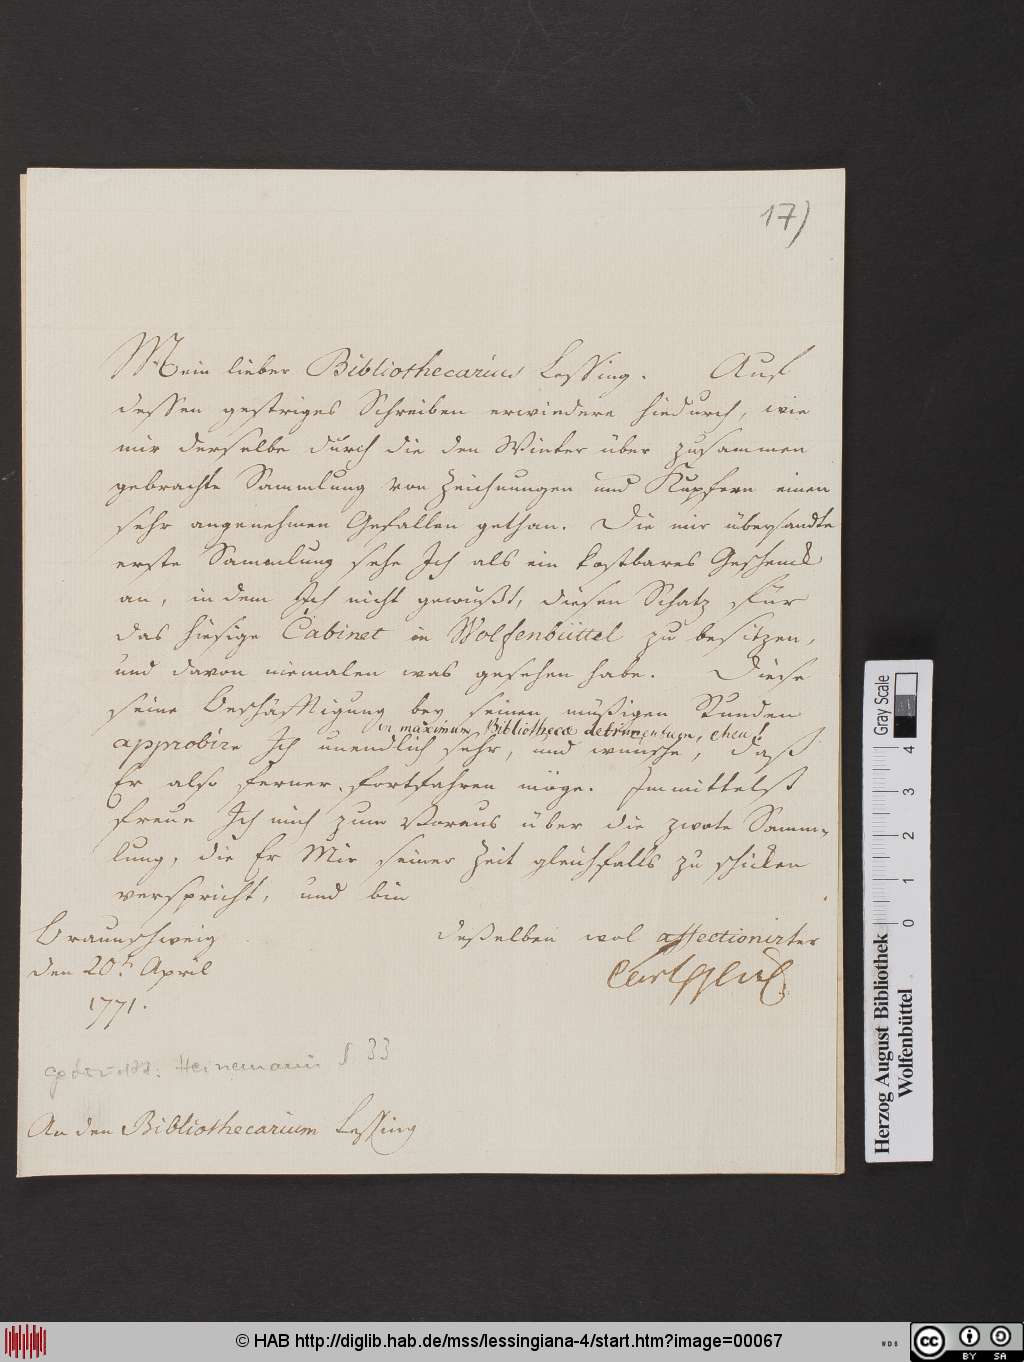 17)
Mein lieber Bibliothecarius Lessing. Auf
dessen gestriges Schreiben erwiedere hiedurch, wie
mir derselbe durch die den Winter über zusammen
gebrachte Sammlung von Zeichnungen und Kupfern einen
sehr angenehmen Gefallen gethan. Die mir übersandte
erste Sammlung sehe Ich als ein kostbares Geschenck
an, in dem Ich nicht gewußt, diesen Schatz für
das hiesige Cabinet in Wolfenbüttel zu besitzen,
und davon niemalen was gesehen habe. Diese
seine Beschäftigung bey seinen müßigen Stunden
in maximum Bibliothecæ detrimentum, eheu!
approbire Ich unendlich sehr, und wünsche, daß
Er also ferner fortfahren möge. Immittelst
freue Ich mich zum Voraus über die zwote Samm-
lung, die Er Mir seiner Zeit gleichfalls zu schicken
verspricht, und bin
Braunschweig
den 20t. April
1771.
deßelben wol affectionirter
Carl
gedruckt: Heinemann S 33
An den Bibliothecarium Lessing
Gray Scale
0 1 2 3 4
Herzog August Bibliothek
Wolfenbüttel
© HAB http://diglib.hab.de/mss/lessingiana-4/start.htm?image=00067
WDB
cc BY SA